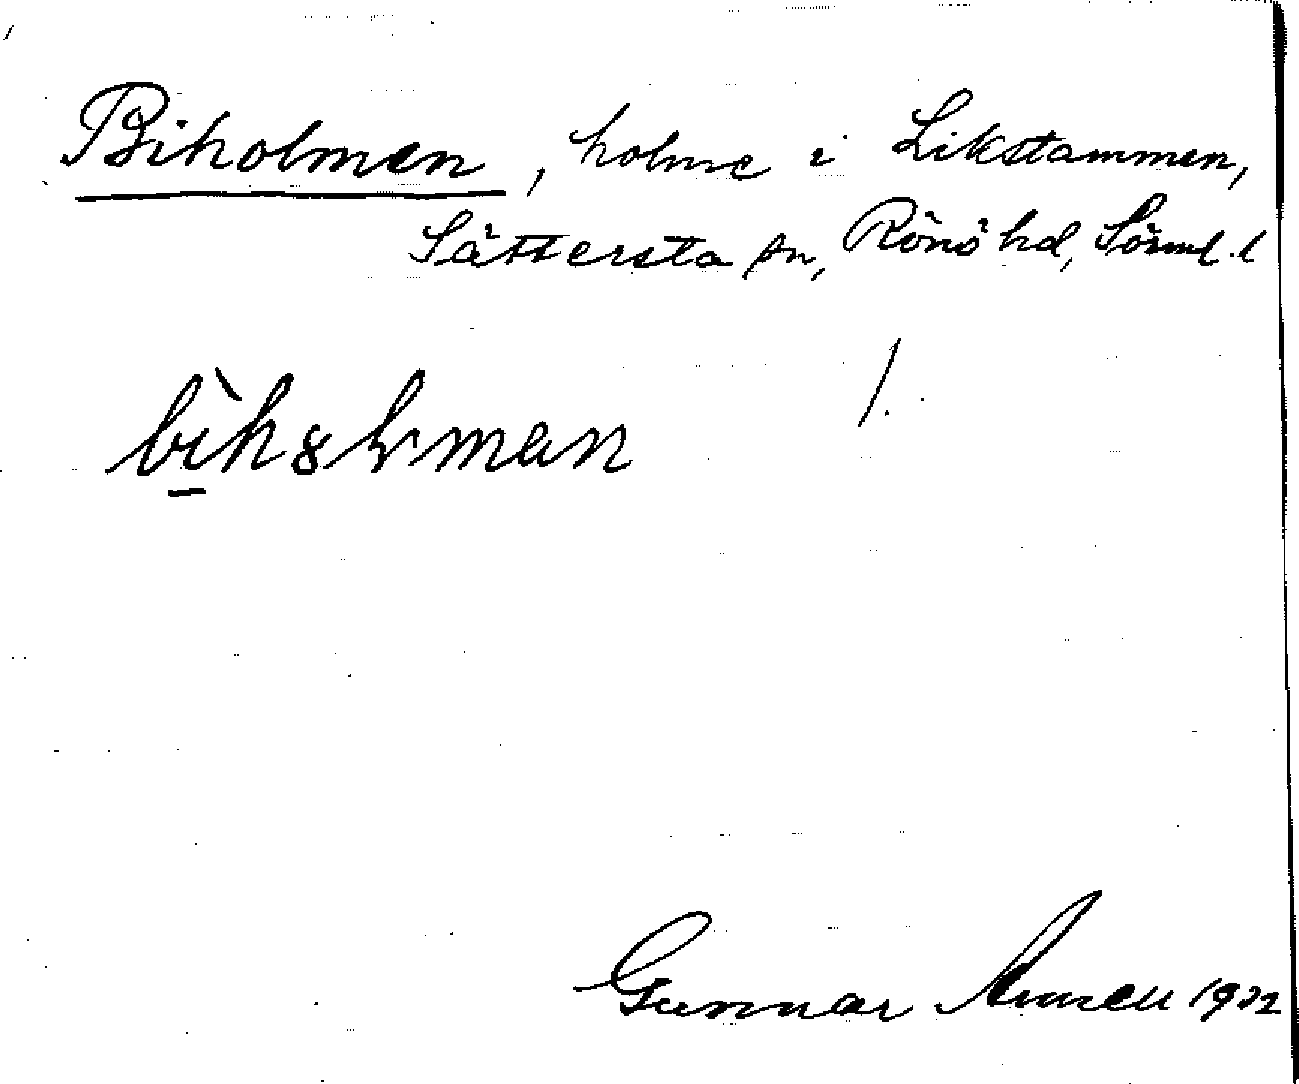 Biholmen, holme i Likstammen,
Sättersta sn, Rönö hd, Sörml. l
/.
bìh8lman
Gunnar Annell 1932